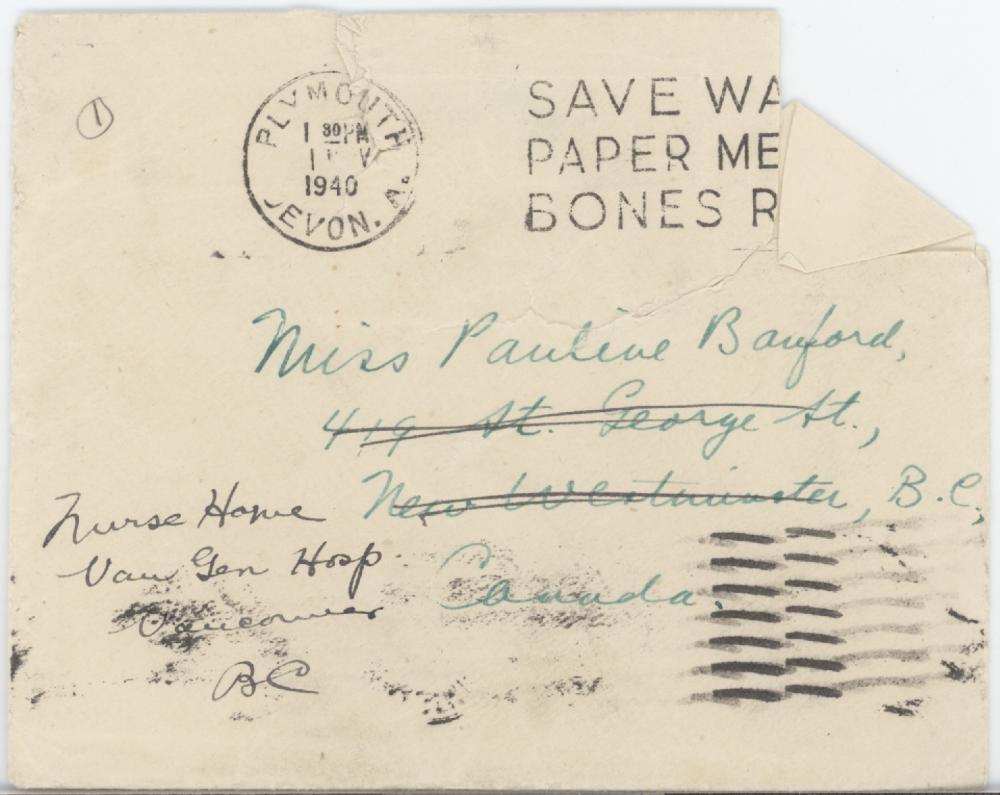 1
PLYMOUTH
1 30 PM
1 V
1940
DEVON. A.
SAVE WA
PAPER ME
BONES R
Miss Pauline Banford,
419 St. George St.,
New Westminster, B.C,
Canada.
Nurse Home
Van Gen Hosp.
Vancouver
BC